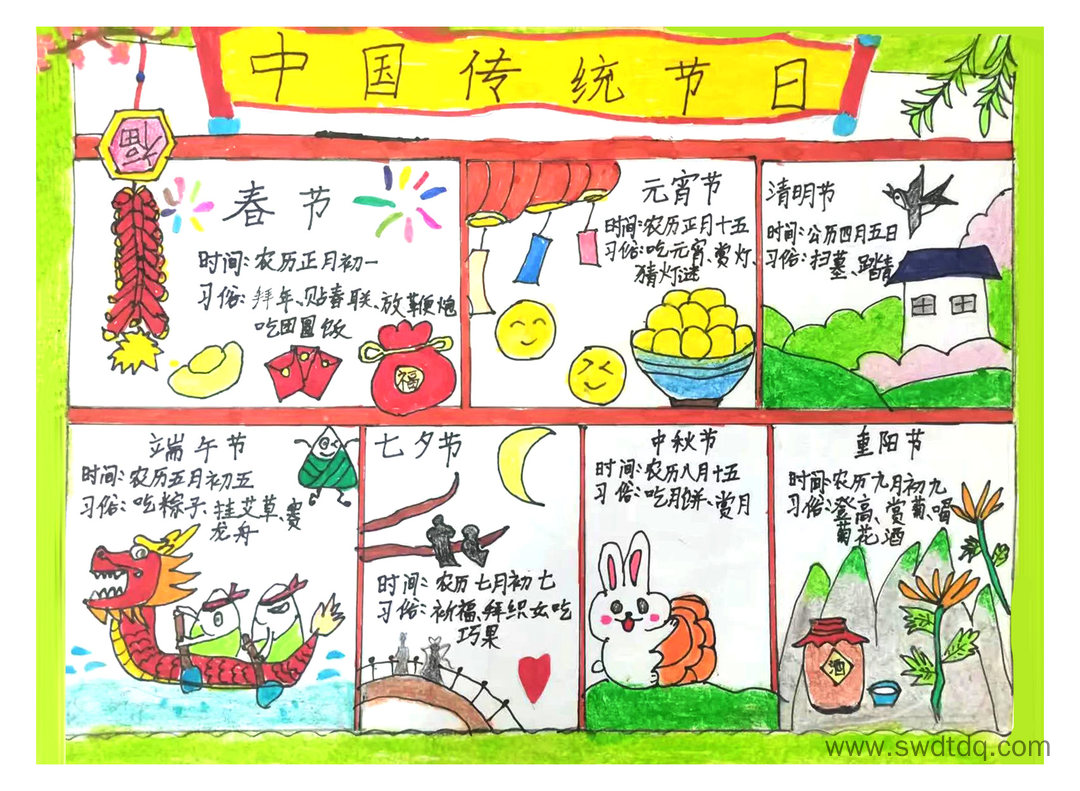 中国传统节日
福
春节
时间:农历正月初一
习俗:拜年、贴春联、放鞭炮
吃团圆饭
福
元宵节
时间:农历正月十五
习俗:吃元宵、赏灯、
猜灯谜
清明节
时间:公历四月五日
习俗:扫墓、踏青
端午节
时间:农历五月初五
习俗:吃粽子、挂艾草、赛
龙舟
七夕节
时间:农历七月初七
习俗:祈福、拜织女吃
巧果
中秋节
时间:农历八月十五
习俗:吃月饼、赏月
重阳节
时间:农历九月初九
习俗:登高、赏菊、喝
菊花酒
酒
www.swdtdq.com